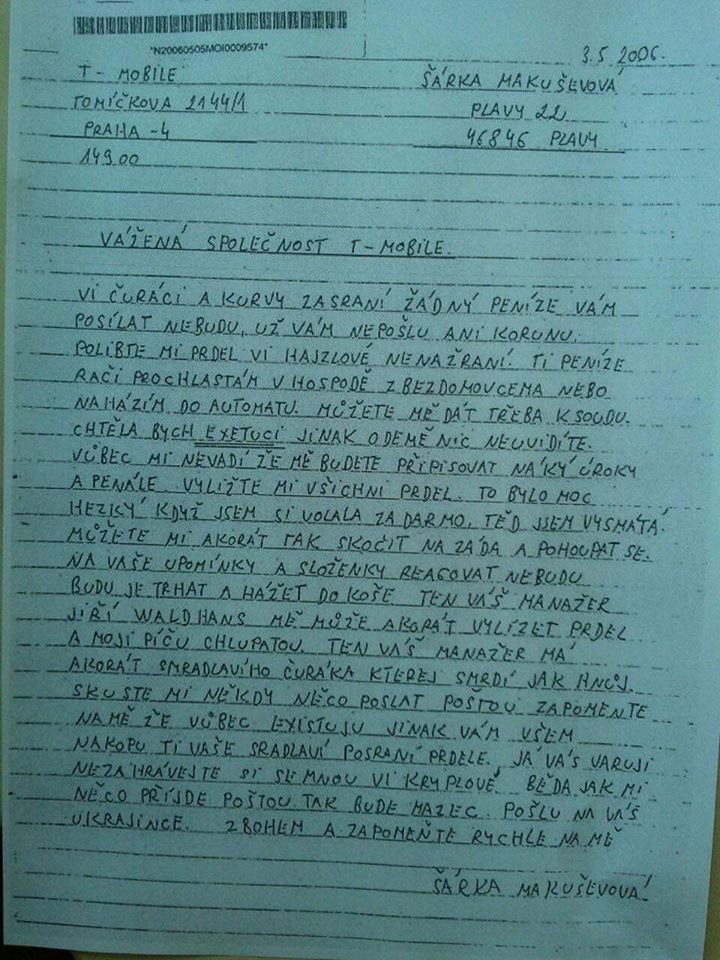 *N20060505MOI0009574*
3.5 2006.
T- MOBILE
ŠÁRKA MAKUŠEVOVÁ
TOMÍČKOVA 2144/1
PLAVY 22
PRAHA -4
46846 PLAVY
149.00
VÁŽENÁ SPOLEČNOST T-MOBILE.
VI ČURÁCI A KURVY ZASRANÍ ŽÁDNÝ PENÍZE VÁM
POSÍLAT NEBUDU, UŽ VÁM NEPOŠLU ANI KORUNU.
POLIBTE MI PRDEL VI HAJZLOVÉ NENAŽRANÍ. TI PENÍZE
RAČI PROCHLASTÁM V HOSPODĚ Z BEZDOMOVCEMA NEBO
NAHÁZÍM DO AUTOMATU. MŮŽETE MĚ DÁT TŘEBA K SOUDU.
CHTĚLA BYCH EXETUCI JINAK ODEMĚ NIC NEUVIDÍTE.
VŮBEC MI NEVADÍ ŽE MĚ BUDETE PŘIPISOVAT NÁKÝ ÚROKY
A PENÁLE VYLIŽTE MI VŠICHNI PRDEL. TO BYLO MOC
HEZKÝ KDYŽ JSEM SI VOLALA ZADARMO, TEĎ JSEM VYSMÁTÁ.
MŮŽETE MI AKORÁT TAK SKOČIT NA ZÁDA A POHOUPAT SE.
NA VAŠE UPOMÍNKY A SLOŽENKY REAGOVAT NEBUDU
BUDU JE TRHAT A HÁZET DO KOŠE TEN VÁŠ MANAŽER
JIŘÍ WALDHANS MĚ MŮŽE AKORÁT VYLÍZET PRDEL
A MOJI PÍČU CHLUPATOU. TEN VÁŠ MANAŽER MÁ
AKORÁT SMRADLAVÍHO ČURÁKA KTEREJ SMRDÍ JAK HNŮJ.
SKUSTE MI NĚKDY NĚCO POSLAT POŠTOU ZAPOMENTE
NA MĚ ŽE VŮBEC EXISTUJU JINAK VÁM VŠEM
NAKOPU TI VAŠE SRADLAVÍ POSRANÍ PRDELE. JÁ VÁS VARUJI
NEZAHRÁVEJTE SI SEMNOU VI KRYPLOVÉ BĚDA JAK MI
NĚCO PŘÍJDE POŠTOU TAK BUDE MAZEC. POŠLU NA VÁŠ
UKRAJINCE. ZBOHEM A ZAPOMEŇTE RYCHLE NA MĚ
ŠÁRKA MAKUŠEVOVÁ